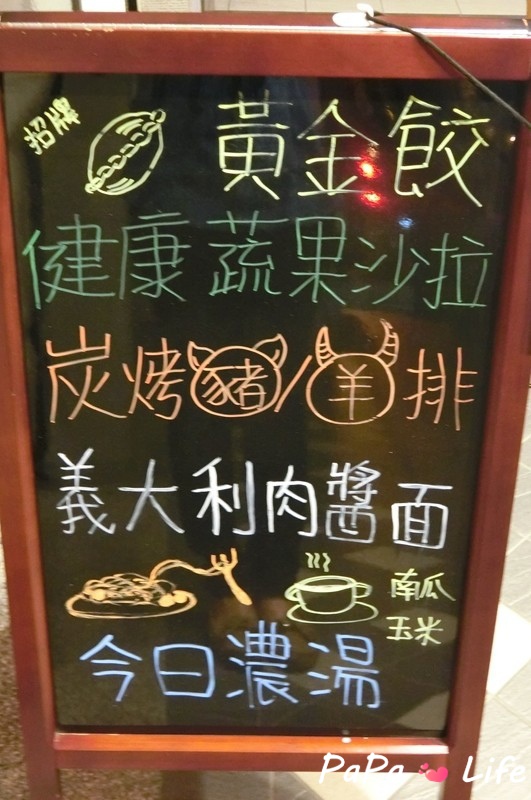 招牌 黃金餃
健康蔬果沙拉
炭烤豬/羊排
義大利肉醬面
南瓜
玉米
今日濃湯
PaPa Life